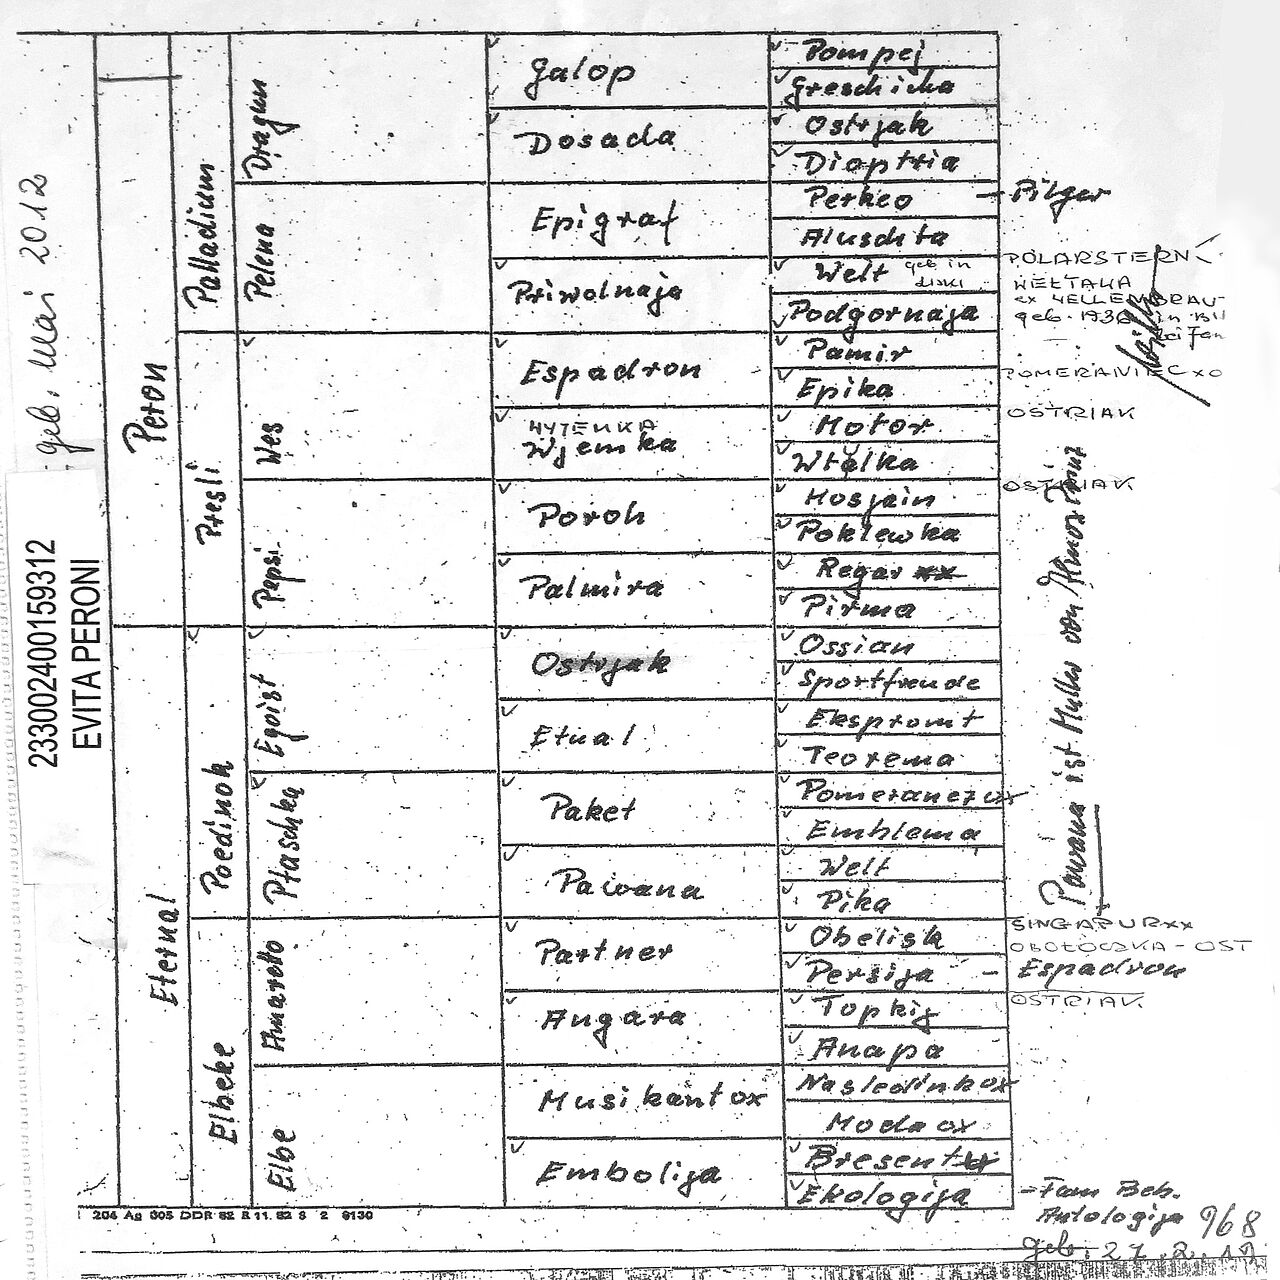 geb. Mai 2012
233002400159312
EVITA PERONI
Peron
Eternal
Palladium
Presli
Poedinok
Elbeke
Dragun
Pelena
Wes
Pepsi
Egoist
Ptaschka
Amaretto
Elbe
Galop
Dosada
Epigraf
Priwolnaja
Espadron
Wjemka
Poroh
Palmira
Ostrjak
Etual
Paket
Pawana
Partner
Angara
Musikant ox
Embolija
Pompej
Greschicha
Ostrjak
Dioptria
Perkeo - Pilger
Aluschta
Welt geb in
Podgornaja
Pamir
Epika
Motor
Wtalka
Hosjain
Poklewka
Regar xx
Pirma
Ossian
Sportfreude
Ekspromt
Teorema
Pomeranez ox
Emblema
Welt
Pika
Obelisk
Persija - Espadron
Topkij
Anapa
Nasledinkox
Moda ox
Bresent
Ekologija
POLARSTERN
WEŁTAWA
geb. 1938 in
POMERANIEC xo
OSTRIAK
OSTRIAK
Pawana ist Mutter von
SINGAPUR xx
OBOŁOCZKA - OST
OSTRIAK
- Fam Beb.
Antologija 968
geb. 27.2.19
204 Ag 305 DDR 82 R 11. 82 S 2 8130